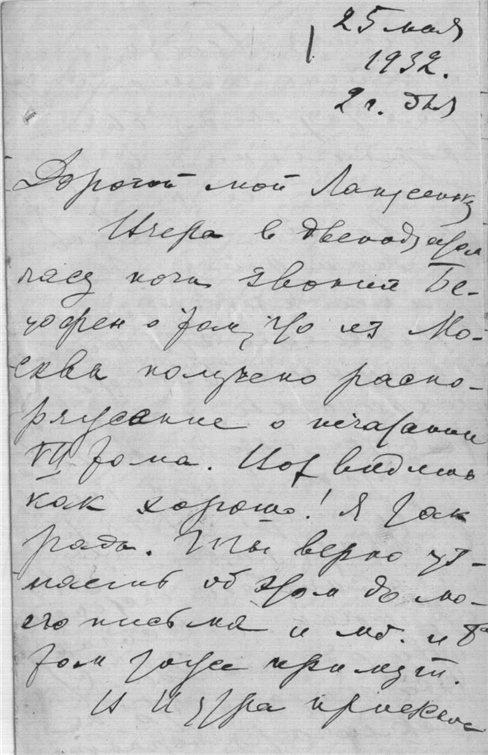 25 мая
1932.
2 ч. дня
Дорогой мой Лапусенка
Вчера в двенадцатом
часу ночи звонил Бе-
тофен о том, что из Мо-
сквы получено распо-
ряжение о печатании
VII тома. Вот видишь
как хорошо! Я так
рада. Ты верно уз-
наешь об этом до мо-
его письма и мб. и в
том тоже примут.
И